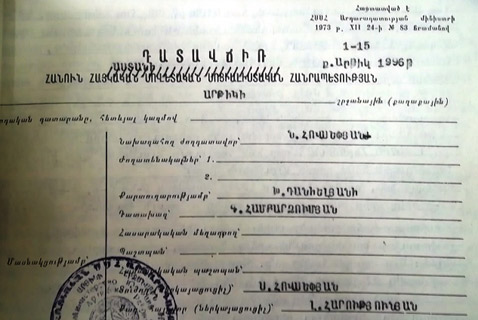 Հաստատված է
ՀՍՍՀ Արդարադատության մինիստրի
1973 թ. XII 24-ի № 83 հրամանով
1-15
ԴԱՏԱՎՃԻՌ
ք.Արթիկ 1996թ
ՀԱՆՈՒՆ ՀԱՅԿԱԿԱՆ ՍՈՎԵՏԱԿԱՆ ՍՈՑԻԱԼԻՍՏԱԿԱՆ ՀԱՆՐԱՊԵՏՈՒԹՅԱՆ
ԱՐԹԻԿԻ
շրջանային (քաղաքային)
դատարանը, հետևյալ կազմով
Նախագահող ժողդատավոր՝ Ն.ՀՈՎՍԵՓՅԱՆ
Ժողատենակալներ՝ 1.
2.
Քարտուղարությամբ՝ Խ.ԴԱՆԻԵԼՅԱՆԻ
Դատախազ՝ Գ.ՀԱՄԲԱՐՁՈՒՄՅԱՆ
Հասարակական մեղադրող՝
Մասնակցությամբ՝
Պաշտպան՝
կան պաշտպան՝
Ս.ՀՈՎՍԵՓՅԱՆ
(ներկայացուցիչ)՝ Լ.ՀԱՐՈՒԹՅՈՒՆՅԱՆ